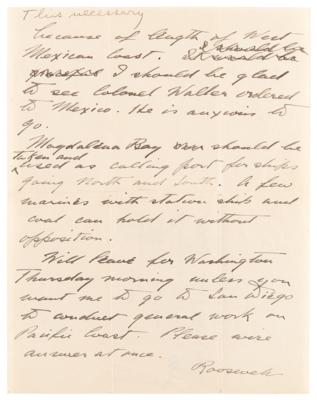 This necessary
because of length of West
Mexican coast. I should be
I should be glad
to see Colonel Waller ordered
to Mexico. He is anxious to
go.
Magdalena Bay over should be
taken and
used as calling port for ships
going North and South. A few
marines with station ship and
coal can hold it without
opposition.
Will leave for Washington
Thursday morning unless you
want me to go to San Diego
to conduct general work on
Pacific Coast. Please wire
answer at once.
Roosevelt